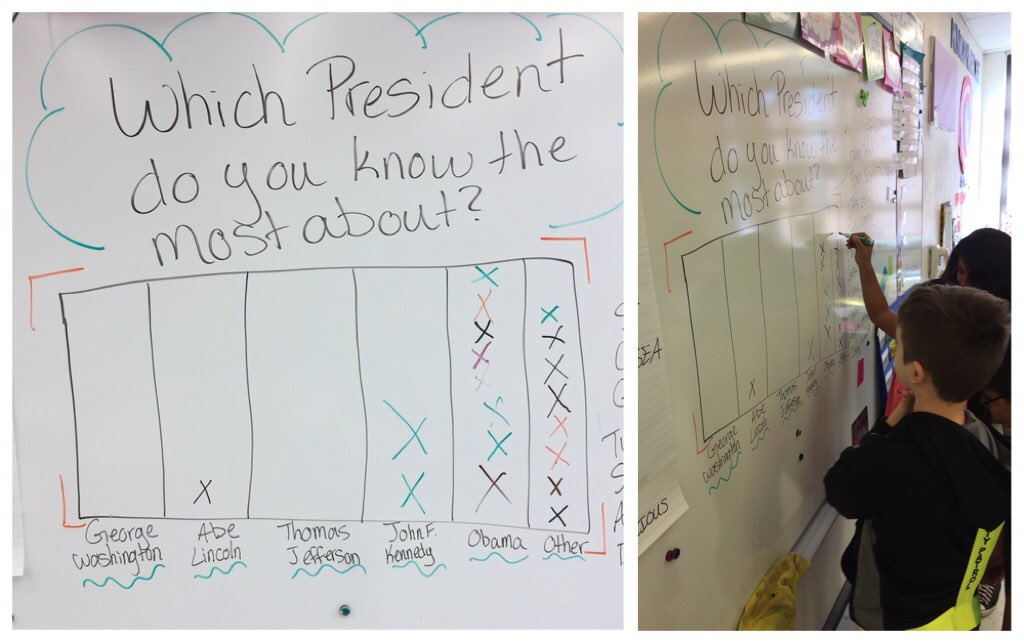 Which President
do you know the
most about?
X
X X
X X
X X X X X X X X
X X X X X X X X
George
Washington
Abe
Lincoln
Thomas
Jefferson
John F.
Kennedy
Obama
Other
Which President
do you know the
most about?
George
Washington
Abe
Lincoln
Thomas
Jefferson
John F.
Kennedy
Obama
Other
SEA
IOUS
TY PATROL